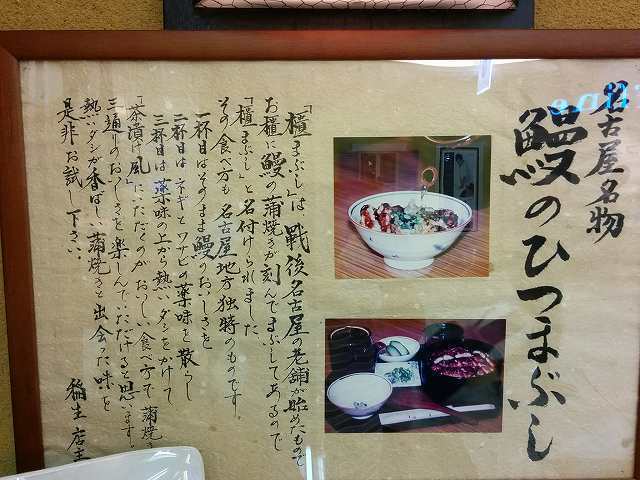 名古屋名物
鰻のひつまぶし
「櫃まぶし」は戦後名古屋の老舗が始めたもので
お櫃に鰻の蒲焼きが刻んでまぶしてあるので
「櫃まぶし」と名付けられました
その食べ方も名古屋地方独特のものです。
一杯目はそのまま鰻のおいしさを
二杯目はネギとワサビの薬味を散らし
三杯目は薬味の上から熱いダシをかけて
「茶漬け風」でいただくのがおいしい食べ方で蒲焼き
三通りのおいしさを楽しんでいただけると思います。
熱いダシが香ばしい蒲焼きと出会った味を
是非お試し下さい。
稲生 店主